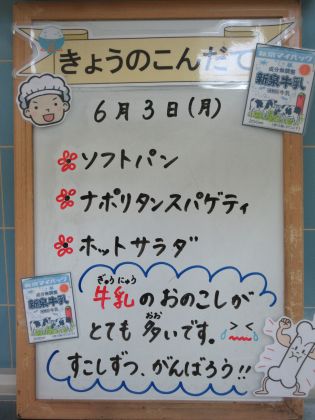 きょうのこんだて
6月3日(月)
ソフトパン
ナポリタンスパゲティ
ホットサラダ
ぎゅうにゅう
牛乳のおのこしが
おお
とても多いです。
すこしずつ、がんばろう!!
新泉牛乳
新泉牛乳